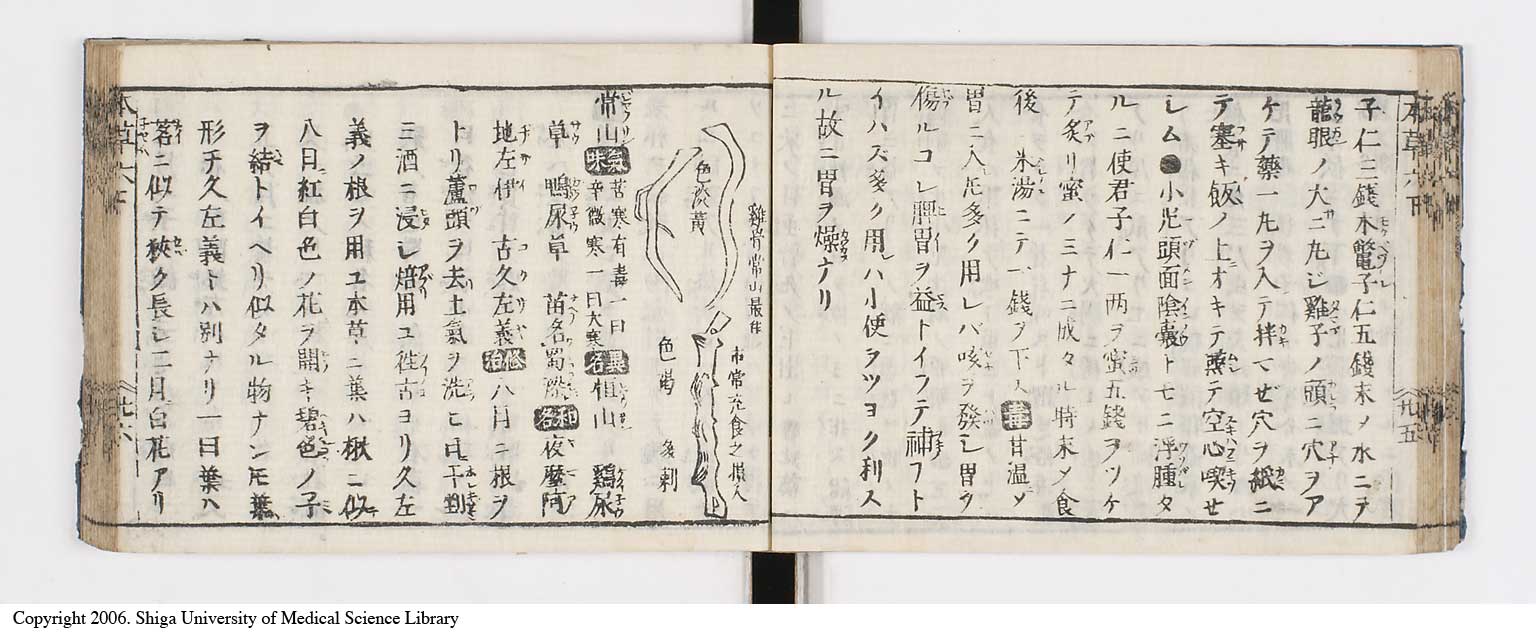 子仁三錢木鼈子仁五錢末ノ水ニテ
龍眼ノ大ニ丸シ雞子ノ頭ニ穴ヲア
ケテ藥一丸ヲ入テ拌マゼ穴ヲ紙ニ
テ塞キ飯ノ上オキテ蒸テ空心喫せ
シム●小児頭面陰囊トモニ浮腫タ
ルニ使君子仁一两ヲ蜜五錢ヲツケ
テ炙リ蜜ノミナニ成タル時末メ食
後米湯ニテ一錢ヲ下ス毒甘温メ
胃ニ入尤多ク用レバ咳ヲ發シ胃ヲ
傷ルコレ脾胃ヲ益トイフテ神フト
イハズ多ク用ハ小使ヲツヨク利ス
ル故ニ胃ヲ燥ナリ
本草六下
九五
雞骨常山最佳
色淡黄
市常充食之損人
色褐
多刺
常山氣味苦寒有毒一曰辛微寒一曰大寒異名恒山 鷄尿
草 鴨尿草 苗名蜀漆和名夜麼阿
地左伊 古久左義修治八月ニ根ヲ
トリ蘆頭ヲ去土氣ヲ洗ヒ日干剉
ミ酒ニ浸し焙用ユ徃古ヨリ久左
義ノ根ヲ用ユ本草ニ葉ハ楸ニ似
八日紅白色ノ花ヲ開キ碧色ノ子
ヲ結トイヘリ似タル物ナンモ葉
形チ久左義トハ別ナリ一曰葉ハ
茗ニ似テ狹ク長し二月白花アリ
本草六下
九六
Copyright 2006. Shiga University of Medical Science Library